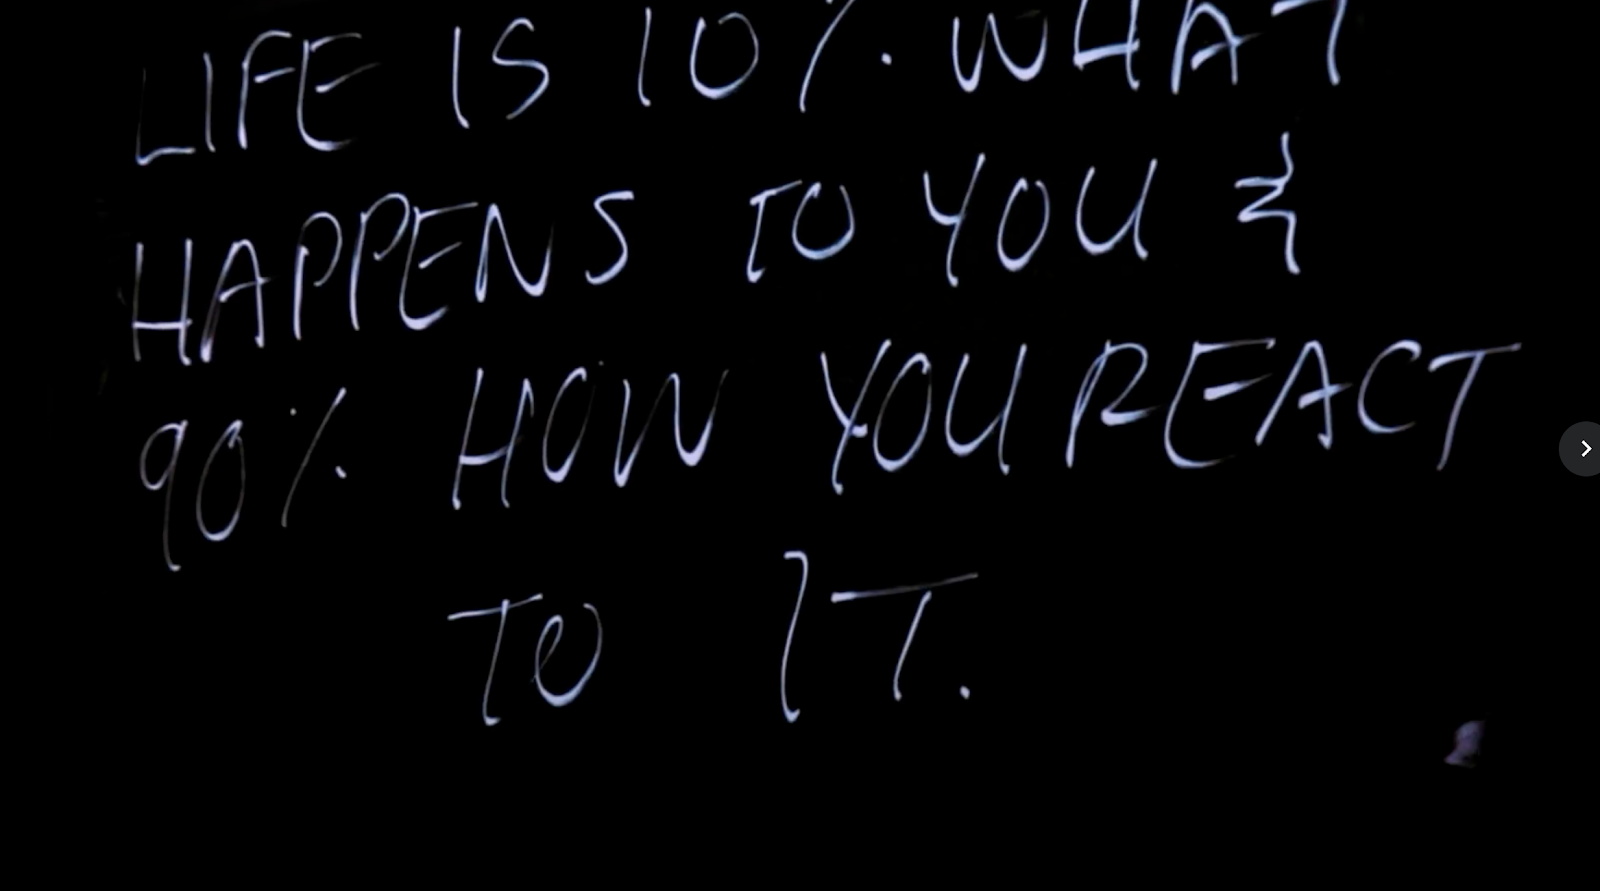 LIFE IS 10% WHAT
HAPPENS TO YOU &
90% HOW YOU REACT
TO IT.